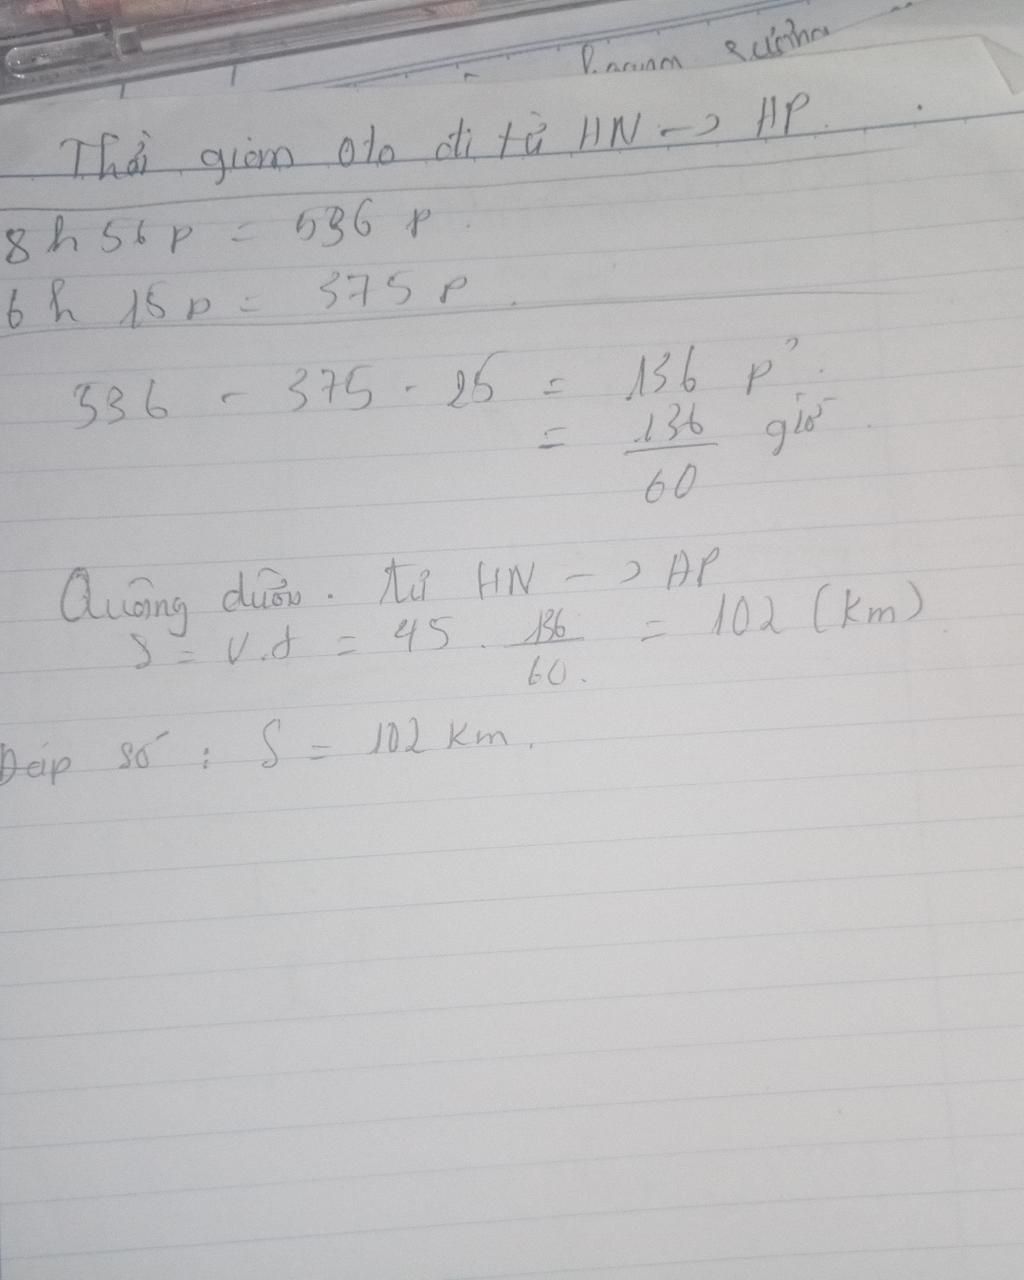 Thời gian oto đi từ HN -> HP.
8 h 56 p = 536 p.
6 h 15 p = 375 p.
536 - 375 - 25 = 136 p'.
= 136/60 giờ.
Quãng đường từ HN -> HP
S = v.t = 45 . 136/60 = 102 (km).
Đáp số : S = 102 km.